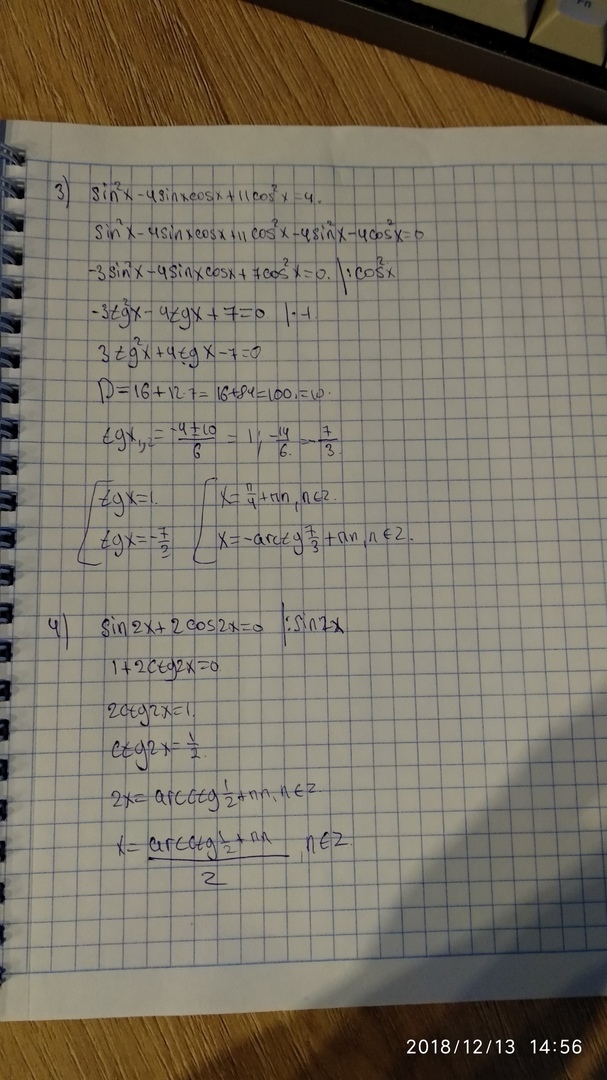 3) sin²x-4sinxcosx+11cos²x=4.
sin²x-4sinxcosx+11cos²x-4sin²x-4cos²x=0
-3sin²x-4sinxcosx+7cos²x=0. |:cos²x
-3tg²x-4tgx+7=0 |·-1
3tg²x+4tgx-7=0
D=16+12·7=16+84=100.=10.
tgx₁,₂=(-4±10)/6=1; -14/6=-7/3
[tgx=1. [x=π/4+πn, n∈Z.
[tgx=-7/3 [x=-arctg7/3+πn, n∈Z.
4) sin2x+2cos2x=0 |:sin2x
1+2ctg2x=0
2ctg2x=1.
ctg2x=1/2.
2x=arcctg1/2+πn, n∈Z
x=(arcctg1/2+πn)/2, n∈Z
2018/12/13 14:56